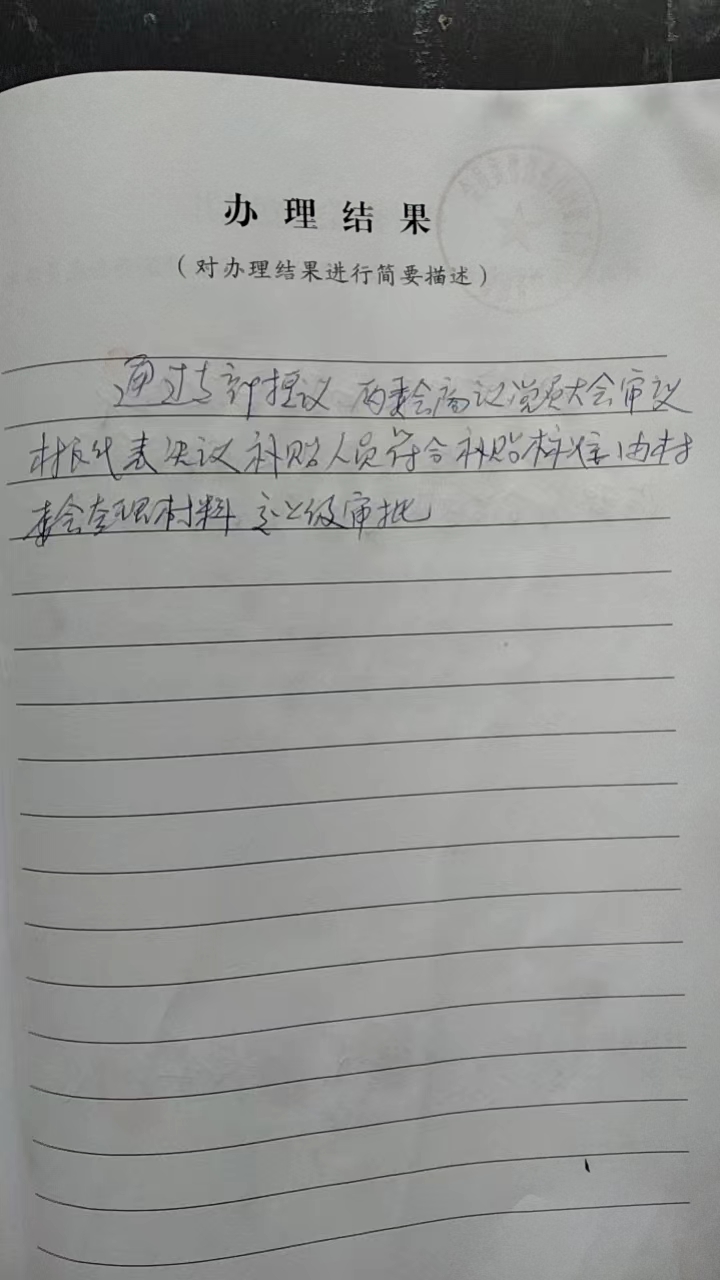 办理结果
（对办理结果进行简要描述）
通过支部提议 两委会商议党员大会审议
村民代表决议 补贴人员符合补贴标准 由村
委会整理材料 交上级审批